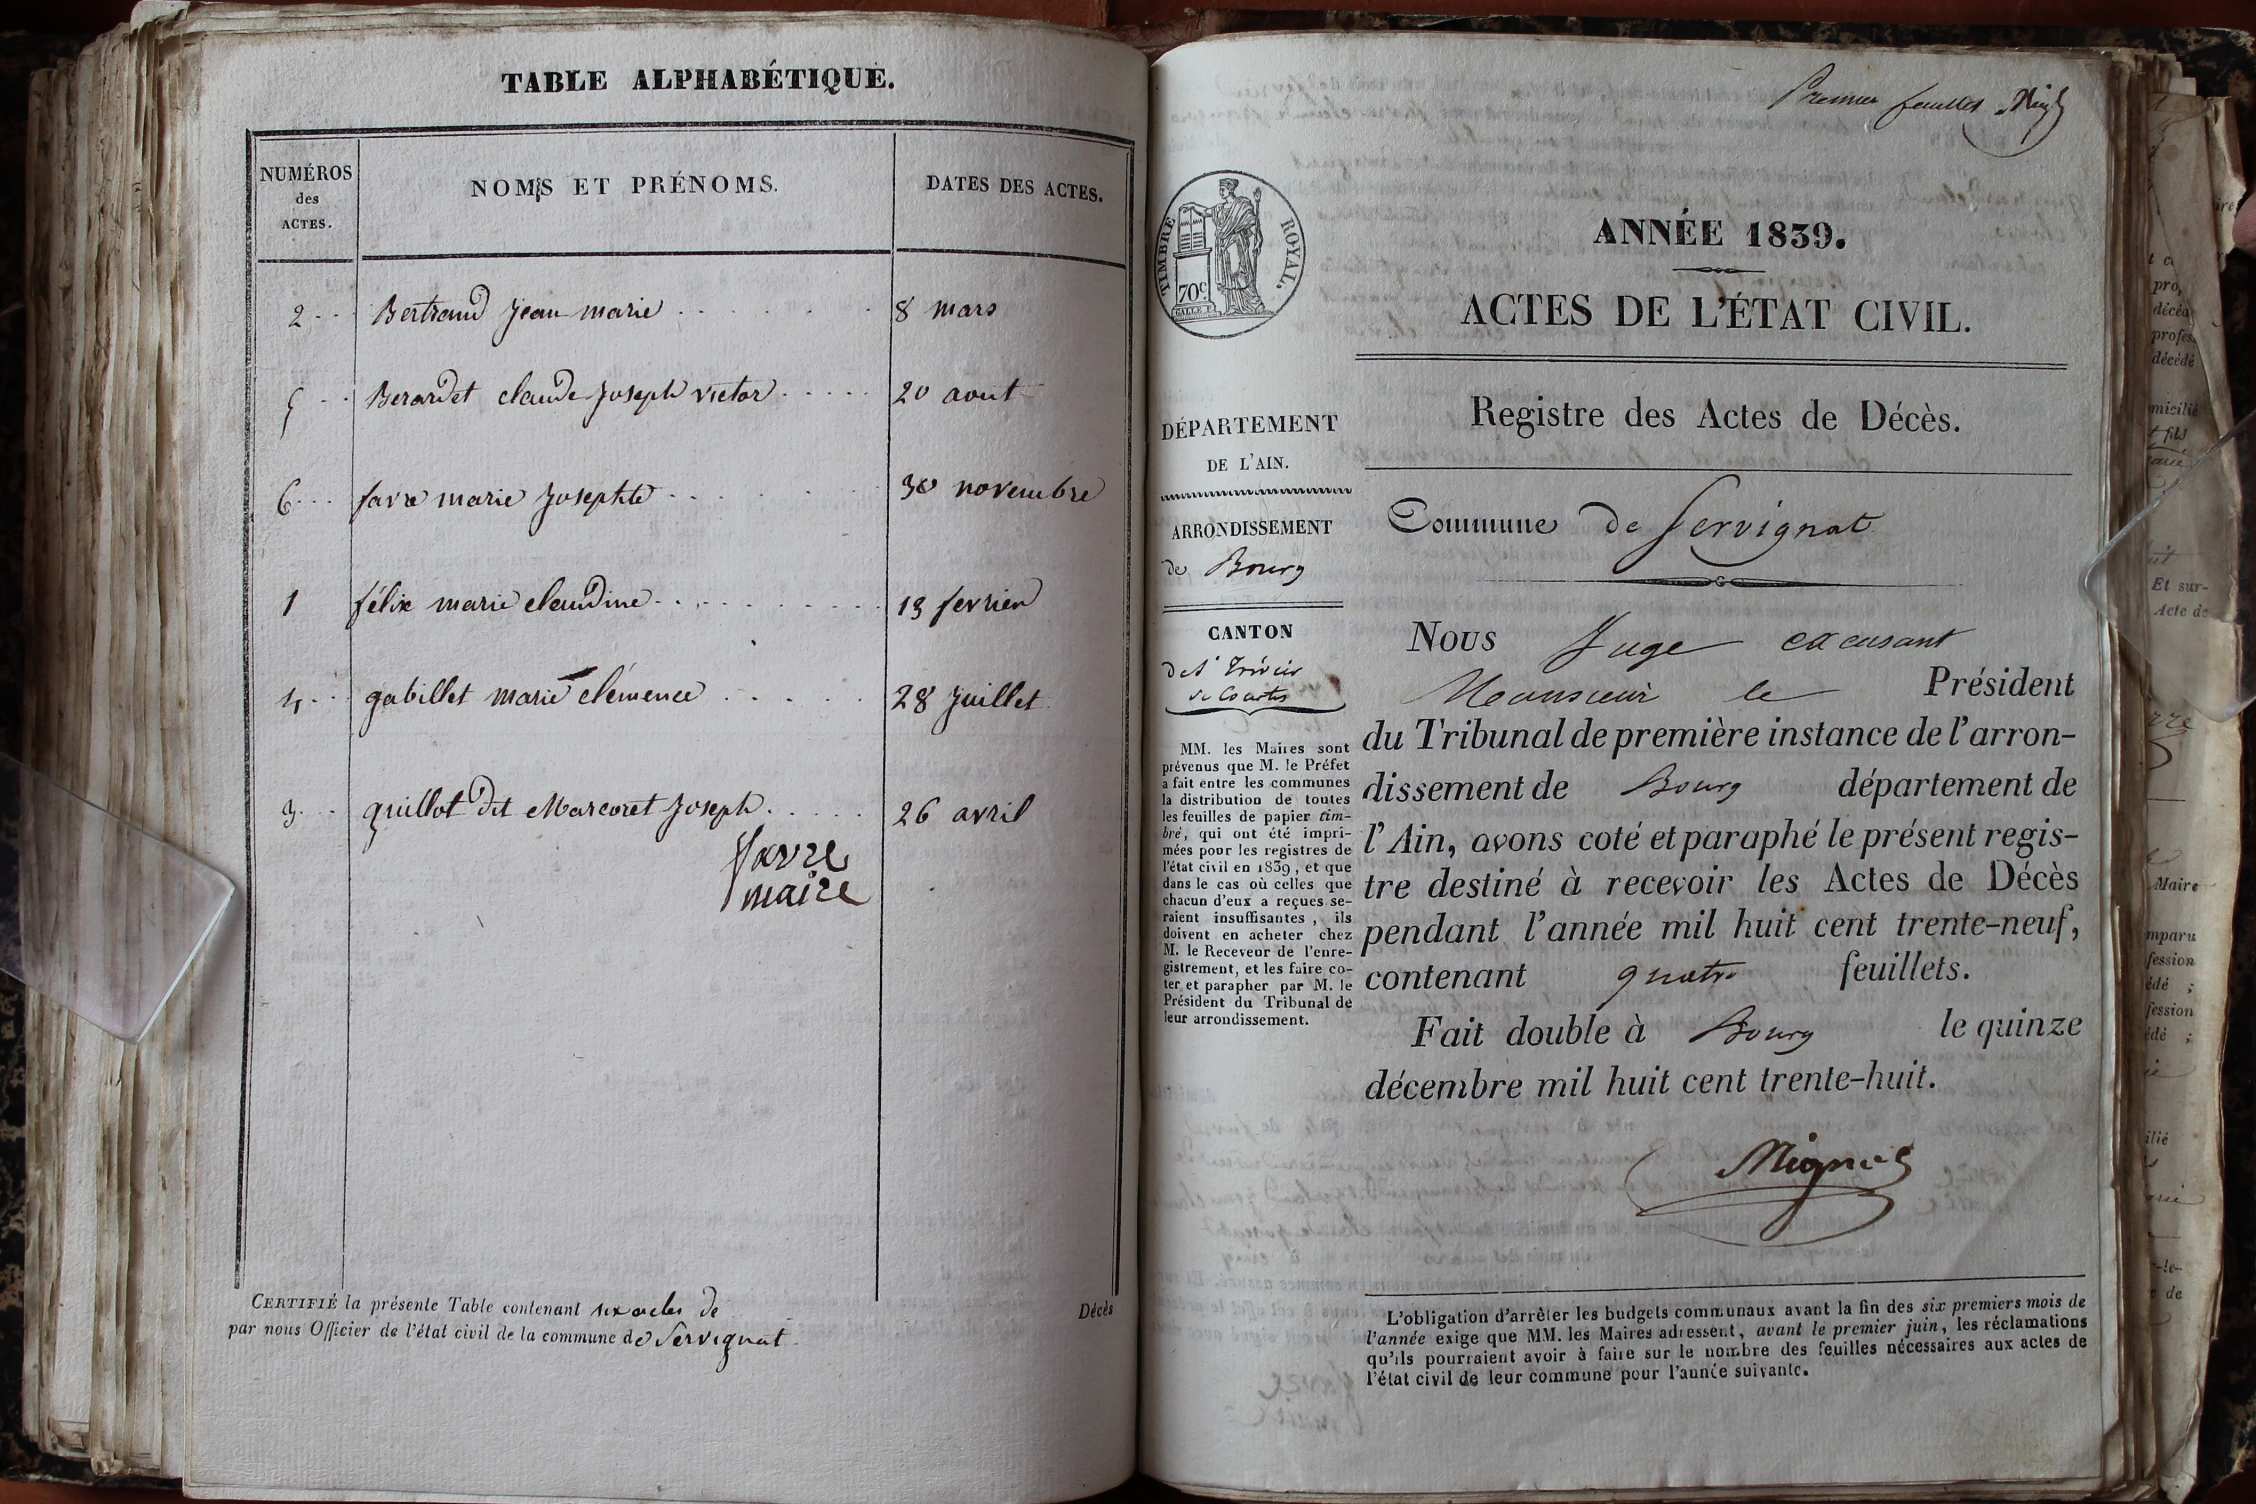 TABLE ALPHABÉTIQUE.
NUMÉROS
des
ACTES.
NOMS ET PRÉNOMS.
DATES DES ACTES.
2 Bertrand Jean marie 8 mars
5 Berardet claude Joseph victor 20 aout
6 favre marie Josephte 30 novembre
1 félix marie claudine 13 fevrier
4 gabillet marie clémence 28 Juillet
3 guillot dit Marcoret Joseph 26 avril
favre
maire
CERTIFIÉ la présente Table contenant six actes de
par nous Officier de l'état civil de la commune de Servignat
Décès
Premier feuillet
TIMBRE ROYAL.
70c
ANNÉE 1839.
ACTES DE L'ÉTAT CIVIL.
Registre des Actes de Décès.
Commune de Servignat
DÉPARTEMENT
DE L'AIN.
ARRONDISSEMENT
de Bourg
CANTON
de St Trivier
de Courtes
MM. les Maires sont
prévenus que M. le Préfet
a fait entre les communes
la distribution de toutes
les feuilles de papier tim-
bré, qui ont été impri-
mées pour les registres de
l'état civil en 1839, et que
dans le cas où celles que
chacun d'eux a reçues se-
raient insuffisantes, ils
doivent en acheter chez
M. le Receveur de l'enre-
gistrement, et les faire co-
ter et parapher par M. le
Président du Tribunal de
leur arrondissement.
Nous Juge excusant
Monsieur le Président
du Tribunal de première instance de l'arron-
dissement de Bourg département de
l'Ain, avons coté et paraphé le présent regis-
tre destiné à recevoir les Actes de Décès
pendant l'année mil huit cent trente-neuf,
contenant quatre feuillets.
Fait double à Bourg le quinze
décembre mil huit cent trente-huit.
L'obligation d'arrêter les budgets communaux avant la fin des six premiers mois de
l'année exige que MM. les Maires adressent, avant le premier juin, les réclamations
qu'ils pourraient avoir à faire sur le nombre des feuilles nécessaires aux actes de
l'état civil de leur commune pour l'année suivante.
décédé
Et sur-
Acte de
Maire